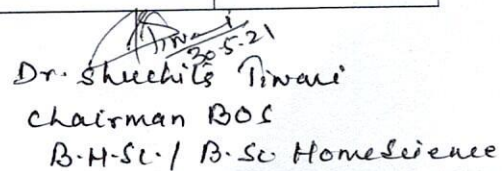 Tiwari
30-5-21
Dr. Shuchita Tiwari
Chairman BOS
B.H.Sc. / B.Sc. HomeScience